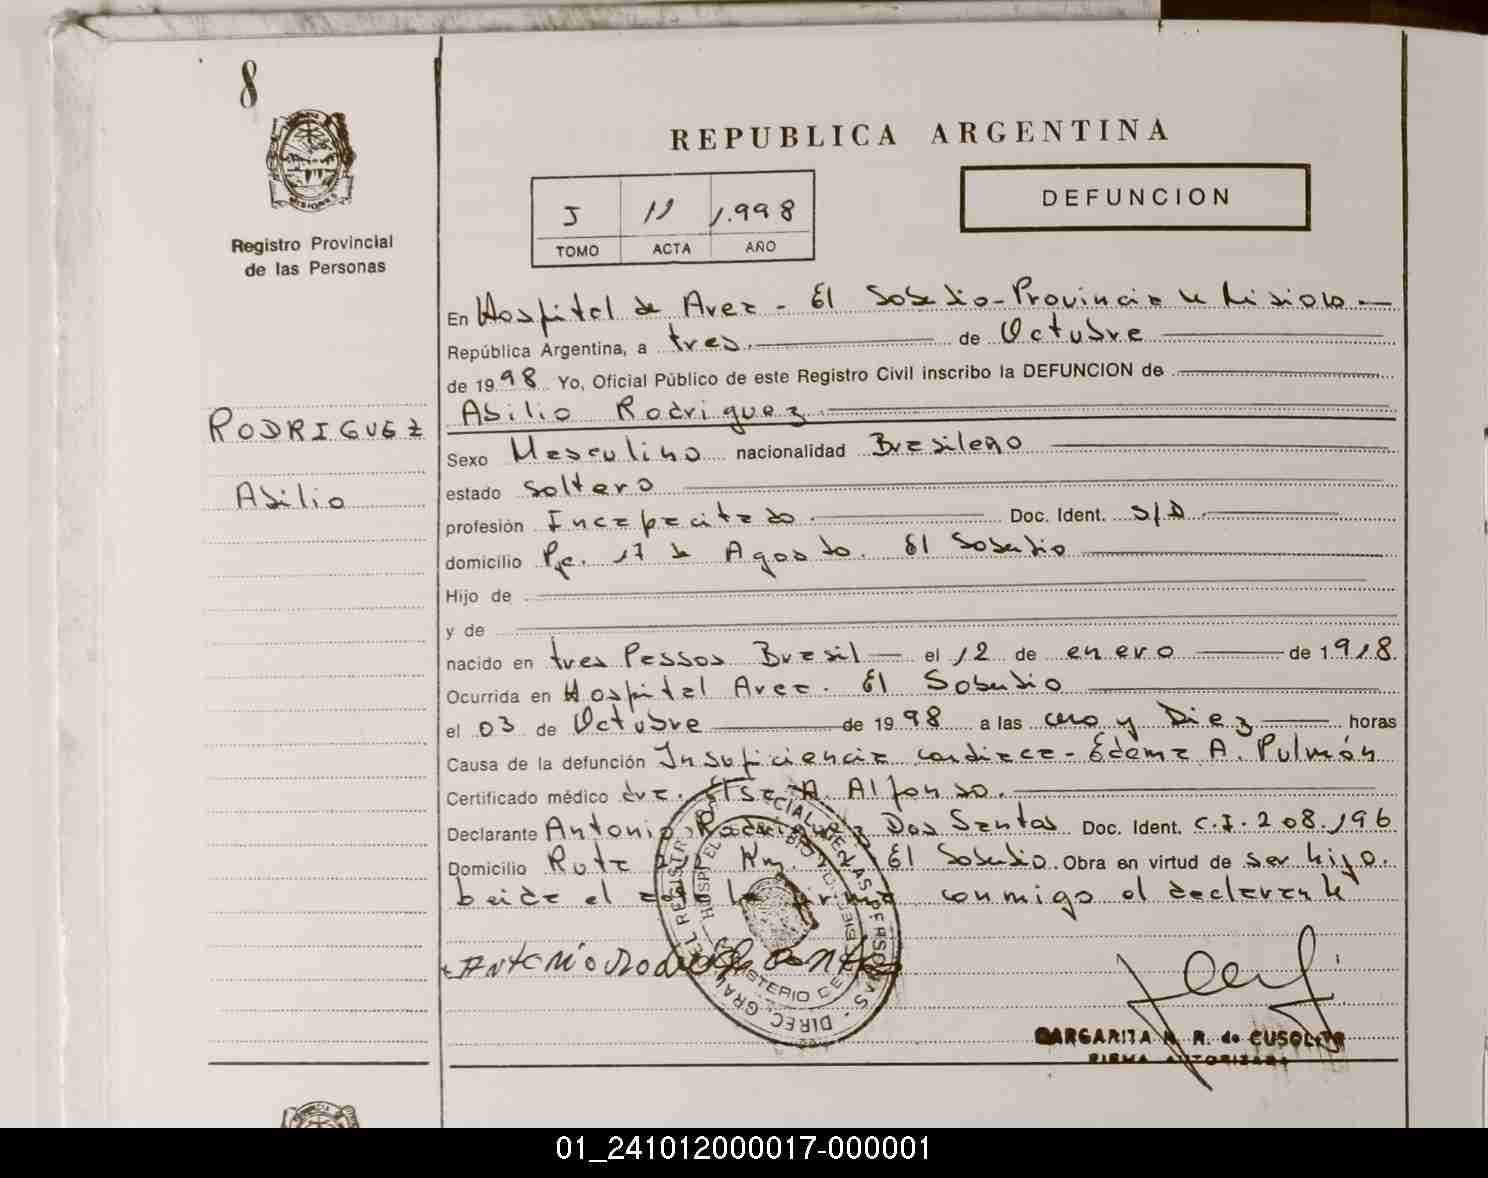 8
MISIONES
Registro Provincial
de las Personas
RODRIGUEZ
Abilio
REPUBLICA ARGENTINA
DEFUNCION
I 11 1.998
TOMO ACTA AÑO
En Hospital de Area - El Soberbio - Provincia de Misiones
República Argentina, a tres de Octubre
de 1998 Yo, Oficial Público de este Registro Civil inscribo la DEFUNCION de
Abilio Rodriguez
Sexo Masculino nacionalidad Brasileño
estado Soltero
profesión Incapacitado Doc. Ident. S/D
domicilio Pje. 17 de Agosto. El Soberbio
Hijo de
y de
nacido en tres Passos Brasil el 12 de enero de 1918.
Ocurrida en Hospital Area. El Soberbio
el 03 de Octubre de 1998 a las cero y Diez horas
Causa de la defunción Insuficiencia cardiaca - Edema A. Pulmón
Certificado médico dra. Elsa A. Alfonso.
Declarante Antonio Rodriguez Dos Santos Doc. Ident. C.I. 208.196
Domicilio Ruta Km. El Soberbio. Obra en virtud de ser hijo.
Leida el acta la firma conmigo el declarante
Antonio Rodriguez
MARGARITA R. de CUSOLITO
FIRMA AUTORIZADA
01_241012000017-000001